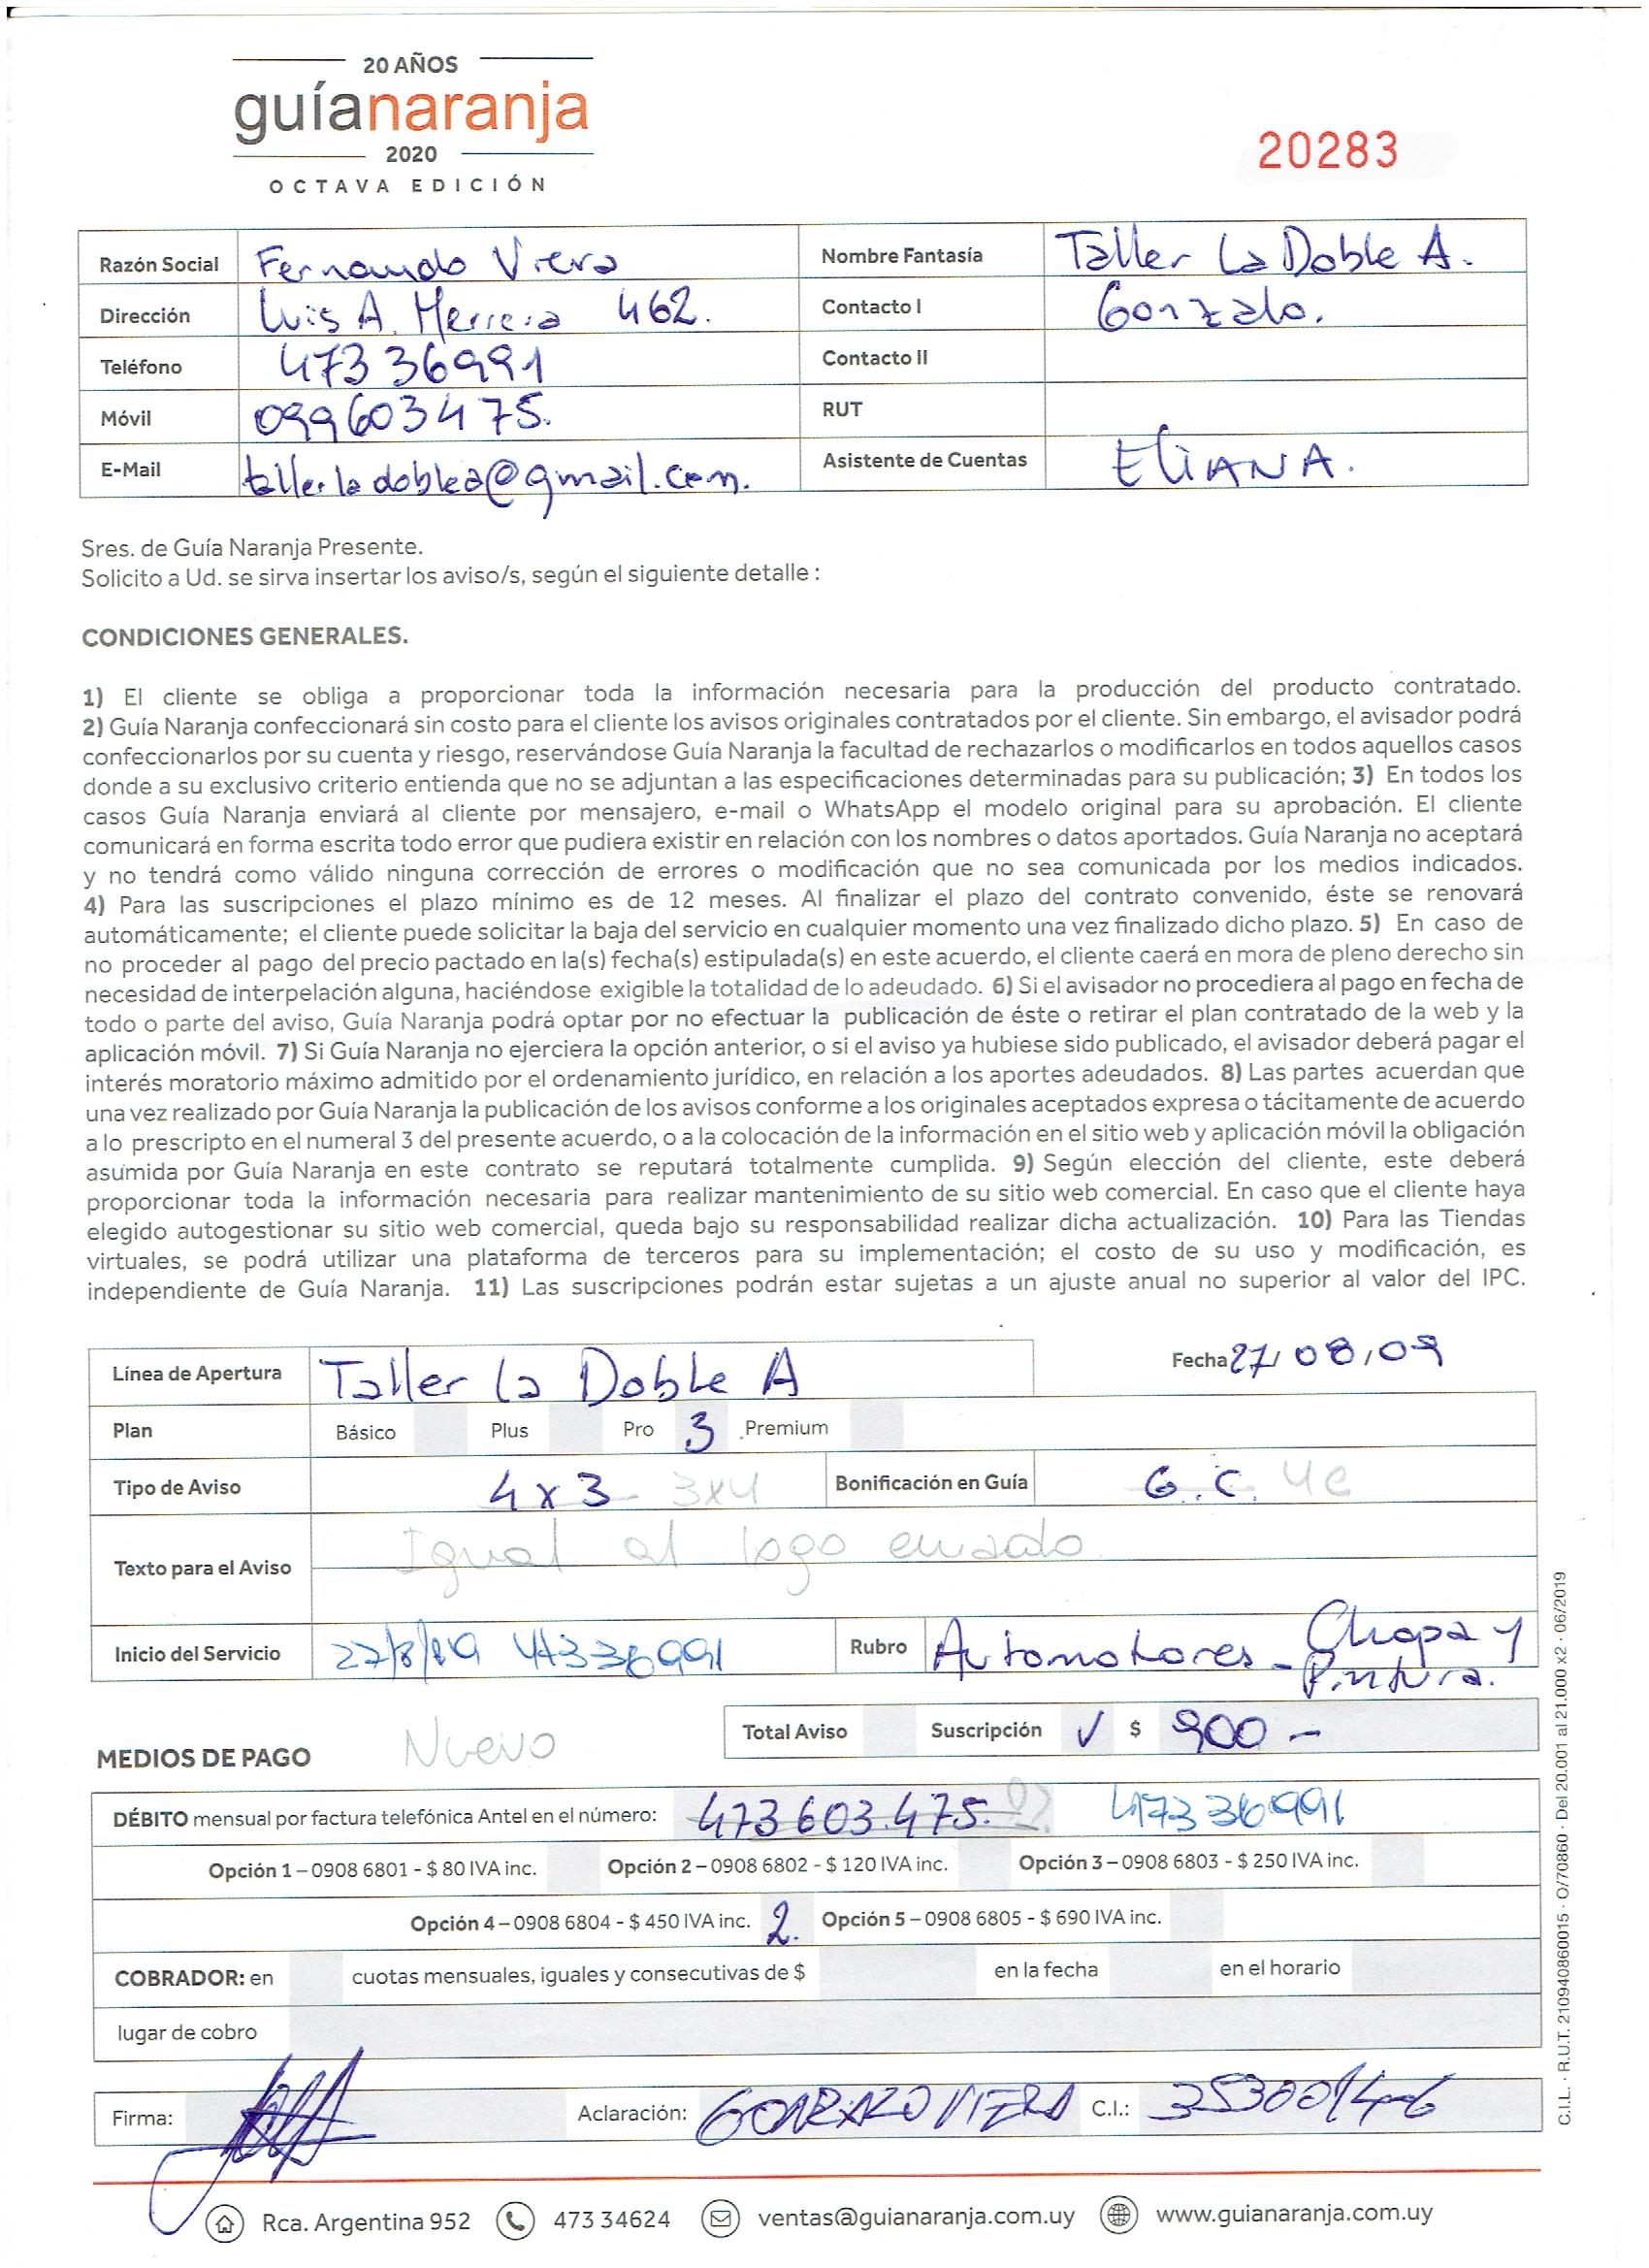 20 AÑOS
guíanaranja
2020
OCTAVA EDICIÓN
20283
Razón Social Fernando Viera Nombre Fantasía Taller La Doble A.
Dirección Luis A. Herrera 462. Contacto I Gonzalo.
Teléfono 473 36991 Contacto II
Móvil 099603475. RUT
E-Mail tallerladoblea@gmail.com. Asistente de Cuentas ELIANA.
Sres. de Guía Naranja Presente.
Solicito a Ud. se sirva insertar los aviso/s, según el siguiente detalle :
CONDICIONES GENERALES.
1) El cliente se obliga a proporcionar toda la información necesaria para la producción del producto contratado.
2) Guía Naranja confeccionará sin costo para el cliente los avisos originales contratados por el cliente. Sin embargo, el avisador podrá
confeccionarlos por su cuenta y riesgo, reservándose Guía Naranja la facultad de rechazarlos o modificarlos en todos aquellos casos
donde a su exclusivo criterio entienda que no se adjuntan a las especificaciones determinadas para su publicación; 3) En todos los
casos Guía Naranja enviará al cliente por mensajero, e-mail o WhatsApp el modelo original para su aprobación. El cliente
comunicará en forma escrita todo error que pudiera existir en relación con los nombres o datos aportados. Guía Naranja no aceptará
y no tendrá como válido ninguna corrección de errores o modificación que no sea comunicada por los medios indicados.
4) Para las suscripciones el plazo mínimo es de 12 meses. Al finalizar el plazo del contrato convenido, éste se renovará
automáticamente; el cliente puede solicitar la baja del servicio en cualquier momento una vez finalizado dicho plazo. 5) En caso de
no proceder al pago del precio pactado en la(s) fecha(s) estipulada(s) en este acuerdo, el cliente caerá en mora de pleno derecho sin
necesidad de interpelación alguna, haciéndose exigible la totalidad de lo adeudado. 6) Si el avisador no procediera al pago en fecha de
todo o parte del aviso, Guía Naranja podrá optar por no efectuar la publicación de éste o retirar el plan contratado de la web y la
aplicación móvil. 7) Si Guía Naranja no ejerciera la opción anterior, o si el aviso ya hubiese sido publicado, el avisador deberá pagar el
interés moratorio máximo admitido por el ordenamiento jurídico, en relación a los aportes adeudados. 8) Las partes acuerdan que
una vez realizado por Guía Naranja la publicación de los avisos conforme a los originales aceptados expresa o tácitamente de acuerdo
a lo prescripto en el numeral 3 del presente acuerdo, o a la colocación de la información en el sitio web y aplicación móvil la obligación
asumida por Guía Naranja en este contrato se reputará totalmente cumplida. 9) Según elección del cliente, este deberá
proporcionar toda la información necesaria para realizar mantenimiento de su sitio web comercial. En caso que el cliente haya
elegido autogestionar su sitio web comercial, queda bajo su responsabilidad realizar dicha actualización. 10) Para las Tiendas
virtuales, se podrá utilizar una plataforma de terceros para su implementación; el costo de su uso y modificación, es
independiente de Guía Naranja. 11) Las suscripciones podrán estar sujetas a un ajuste anual no superior al valor del IPC.
Línea de Apertura Taller La Doble A Fecha 27/08/09
Plan Básico Plus Pro 3 Premium
Tipo de Aviso 4x3 3x4 Bonificación en Guía G.C. 4C
Texto para el Aviso Igual al logo enviado
Inicio del Servicio 27/8/19 47336991 Rubro Automotores - Chapa y
Pintura.
Total Aviso Suscripción ✓ $ 900 -
MEDIOS DE PAGO Nuevo
DÉBITO mensual por factura telefónica Antel en el número: 473 603.475. ?? 473 36991
Opción 1 – 0908 6801 - $ 80 IVA inc. Opción 2 – 0908 6802 - $ 120 IVA inc. Opción 3 – 0908 6803 - $ 250 IVA inc.
Opción 4 – 0908 6804 - $ 450 IVA inc. 2. Opción 5 – 0908 6805 - $ 690 IVA inc.
COBRADOR: en cuotas mensuales, iguales y consecutivas de $ en la fecha en el horario
lugar de cobro
Firma: Aclaración: GONZALO VIERA C.I.: 3530014-6
Rca. Argentina 952 473 34624 ventas@guianaranja.com.uy www.guianaranja.com.uy
C.I.L. · R.U.T. 210940860015 · O/70860 · Del 20.001 al 21.000 x2 · 06/2019